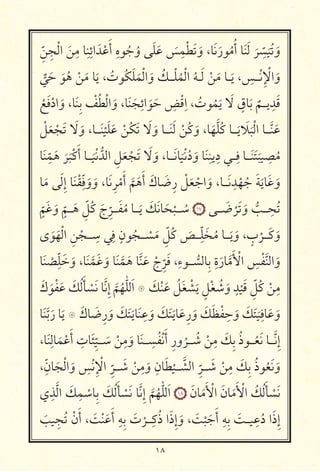 وَتُيَسِّرَ لَنَا أُمُورَنَا، وَتَطْمِسَ عَلَى وُجُوهِ أَعْدَائِنَا مِنَ الْجِنِّ
وَالْإِنْـسِ، يَـا مَنْ لَـهُ الْمُلْـكُ وَالْمَلَكُوتُ، يَا مَنْ هُوَ حَيٌّ
قَدِيـمٌ بَاقٍ لَا يَمُوتُ، اِقْضِ حَوَائِجَنَا، وَالْطُفْ بِنَا، وَادْفَعْ
عَنَّـا الْبَلَايَـا كُلَّهَا، وَكُنْ لَنَـا وَلَا تَكُنْ عَلَيْنَـا، وَلَا تَجْعَلْ
مُصِيبَتَنَـا فِـي دِينِنَا وَدُنْيَانَـا، وَلَا تَجْعَلِ الدُّنْيَـا أَكْبَرَ هَمِّنَا
وَغَايَةَ جُهْدِنَـا، وَاجْعَلْ رِضَاكَ أَهَمَّ أَمْرِنَا، وَوَفِّقْنَا إِلَى مَا
تُحِـبُّ وَتَرْضَـى ۞ سُـبْحَانَكَ يَـا مُفَـرِّجَ كُلِّ هَـمٍّ وَغَمٍّ
وَكَـرْبٍ، وَيَـا مُخَلِّـصَ كُلِّ مَسْـجُونٍ فِي سِـجْنِ الْهَوَى
وَالنَّفْسِ الْأَمَّارَةِ بِالسُّـوءِ، فَرِّجْ عَنَّا هَمَّنَا وَغَمَّنَا، وَخَلِّصْنَا
مِنْ كُلِّ قَيْدٍ وَشُغْلٍ يَشْغَلُ عَنْكَ ۞ اَللّٰهُمَّ إِنَّا نَسْأَلُكَ عَفْوَكَ
وَعَافِيَتَكَ وَحِفْظَكَ وَرِعَايَتَكَ وَعِنَايَتَكَ وَرِضَاكَ ۞ يَا رَبَّنَا
إِنَّـا نَعُـوذُ بِكَ مِنْ شُـرُورِ أَنْفُسِـنَا وَمِنْ سَـيِّئَاتِ أَعْمَالِنَا،
وَنَعُوذُ بِكَ مِنْ شَـرِّ الشَّـيْطَانِ وَمِنْ شَـرِّ الْإِنْسِ وَالْجَانِّ،
نَسْأَلُكَ الْأَمَانَ الْأَمَانَ ۞ اَللّٰهُمَّ إِنَّا نَسْأَلُكَ بِاسْمِكَ الَّذِي
إِذَا دُعِيـتَ بِهِ أَجَبْتَ، وَإِذَا ذُكِـرْتَ بِهِ أَعَنْتَ، أَنْ تُجِيبَ
١٨